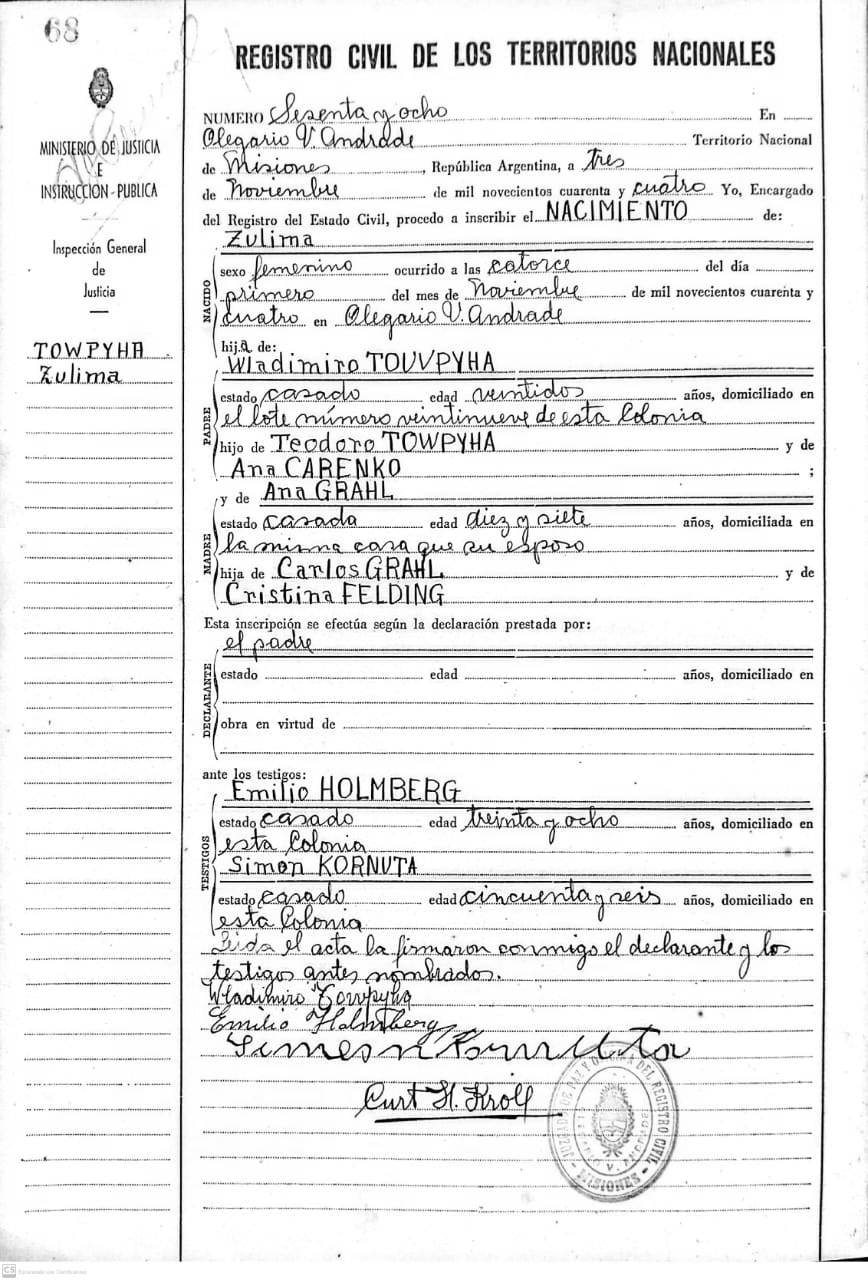 68
REGISTRO CIVIL DE LOS TERRITORIOS NACIONALES
MINISTERIO DE JUSTICIA
E
INSTRUCCION PUBLICA
Inspección General
de
Justicia
TOWPYHA
Zulima
NUMERO Sesenta y ocho En
Olegario V. Andrade Territorio Nacional
de Misiones, República Argentina, a tres
de Noviembre de mil novecientos cuarenta y cuatro Yo, Encargado
del Registro del Estado Civil, procedo a inscribir el NACIMIENTO de:
Zulima
NACIDO
sexo femenino ocurrido a las catorce del día
primero del mes de Noviembre de mil novecientos cuarenta y
cuatro en Olegario V. Andrade
hija de:
Wladimiro TOWPYHA
PADRE
estado casado edad veintidos años, domiciliado en
el lote número veintinueve de esta Colonia
hijo de Teodoro TOWPYHA y de
Ana CARENKO ;
y de Ana GRAHL
MADRE
estado casada edad diez y siete años, domiciliada en
la misma casa que su esposo
hija de Carlos GRAHL y de
Cristina FELDING
Esta inscripción se efectúa según la declaración prestada por:
el padre
DECLARANTE
estado edad años, domiciliado en
obra en virtud de
ante los testigos:
Emilio HOLMBERG
TESTIGOS
estado casado edad treinta y ocho años, domiciliado en
esta Colonia
Simon KORNUTA
estado casado edad cincuenta y seis años, domiciliado en
esta Colonia
Leida el acta la firmaron conmigo el declarante y los
testigos antes nombrados.
Wladimiro Towpyha
Emilio Holmberg
Simeon Kornuta
Curt H. Kroll
JUZGADO DE PAZ Y OFICINA DEL REGISTRO CIVIL
OLEGARIO V. ANDRADE
MISIONES
CS Escaneado con CamScanner